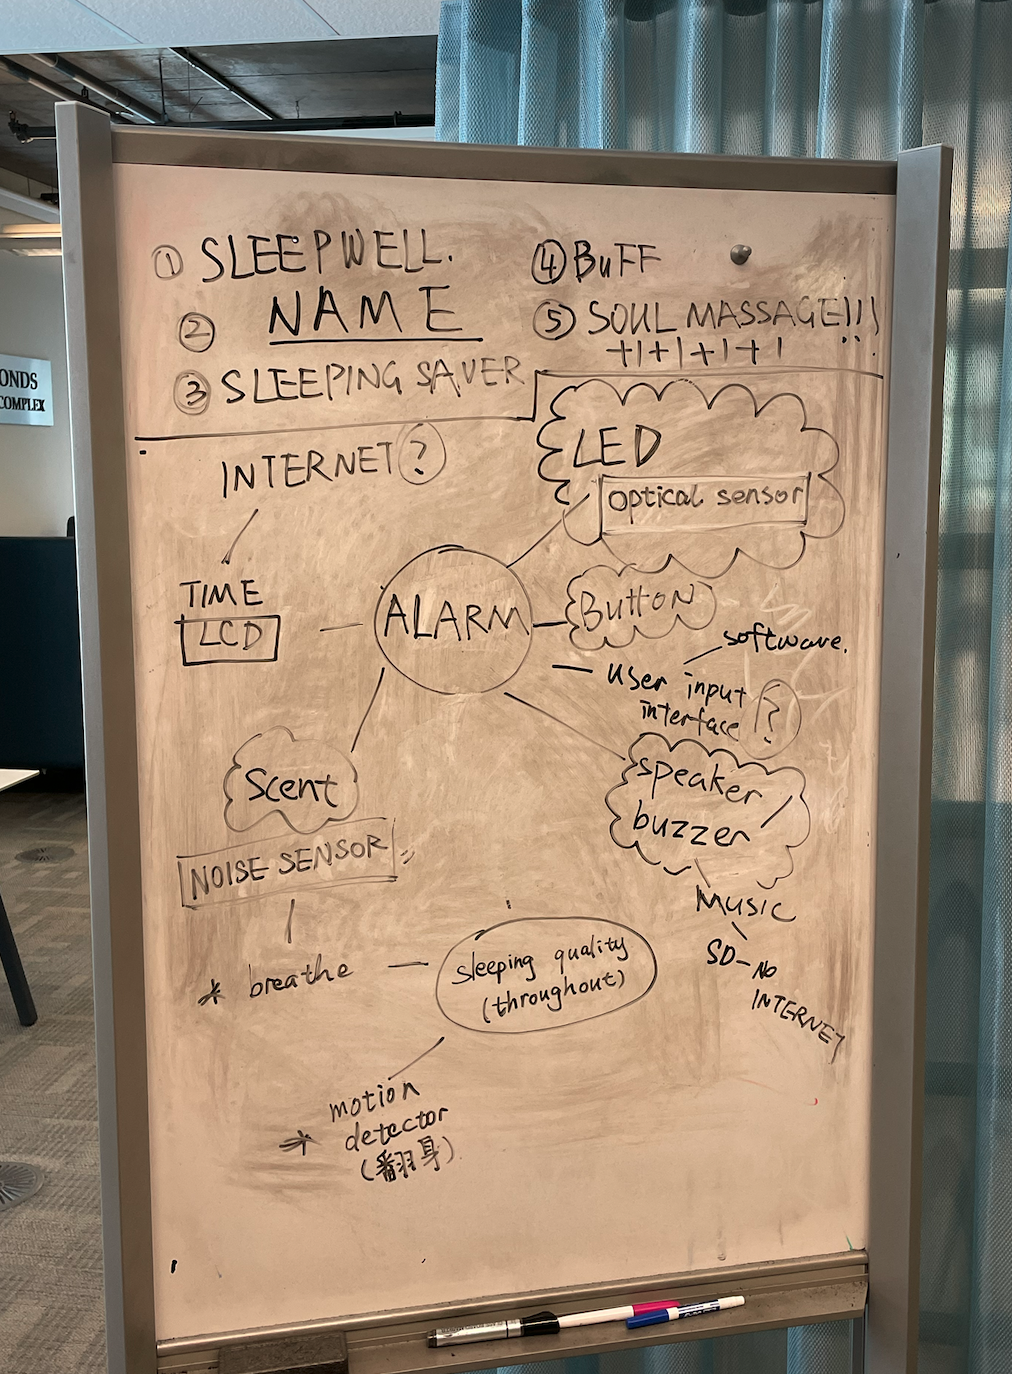 ① SLEEPWELL.
② NAME
③ SLEEPING SAVER
④ BuFF
⑤ SOUL MASSAGE!!!
+1+1+1+1
INTERNET?
TIME
LCD
ALARM
LED
Optical sensor
Button
software.
user input
interface ?
speaker
buzzer
MUSIC
SD-NO
INTERNET
Scent
NOISE SENSOR
* breathe
sleeping quality
(throughout)
* motion
detector
(翻身)
ONDS
COMPLEX